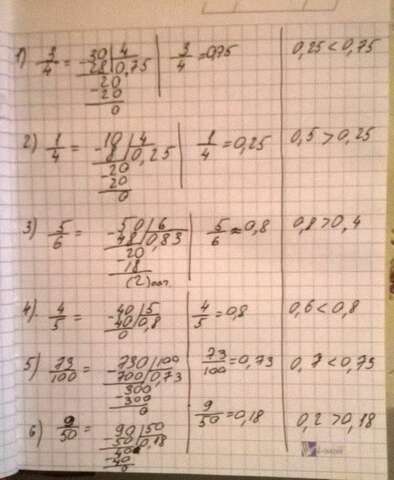 1) 3/4 = -30 | 4 3/4 = 0,75 0,25 < 0,75
28 | 0,75
-20
-20
0
2) 1/4 = -10 | 4 1/4 = 0,25 0,5 > 0,25
8 | 0,25
-20
20
0
3) 5/6 = -50 | 6 5/6 ≈ 0,8 0,8 > 0,4
48 | 0,83
-20
18
(2) ост.
4) 4/5 = -40 | 5 4/5 = 0,8 0,6 < 0,8
40 | 0,8
0
5) 73/100 = -730 | 100 73/100 = 0,73 0,7 < 0,73
700 | 0,73
-300
300
0
6) 9/50 = -90 | 50 9/50 = 0,18 0,2 > 0,18
-50 | 0,18
40
-40
0